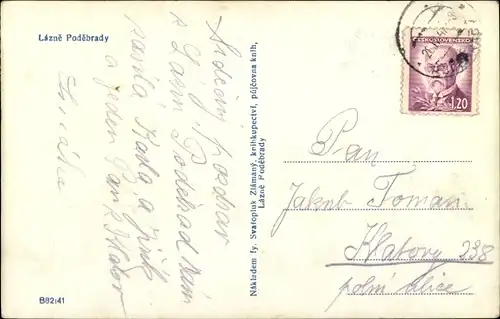 Lázně Poděbrady
Srdečný pozdrav
z Lázní Poděbrad Vám
Karla a
a jeden Pan z
B82:41
Nákladem fy. Svatopluk Zlámaný, knihkupectví, půjčovna knih,
Lázně Poděbrady
ČESKOSLOVENSKO
1.20
Pan
Jakub Toman
Klatovy 238
polní ulice